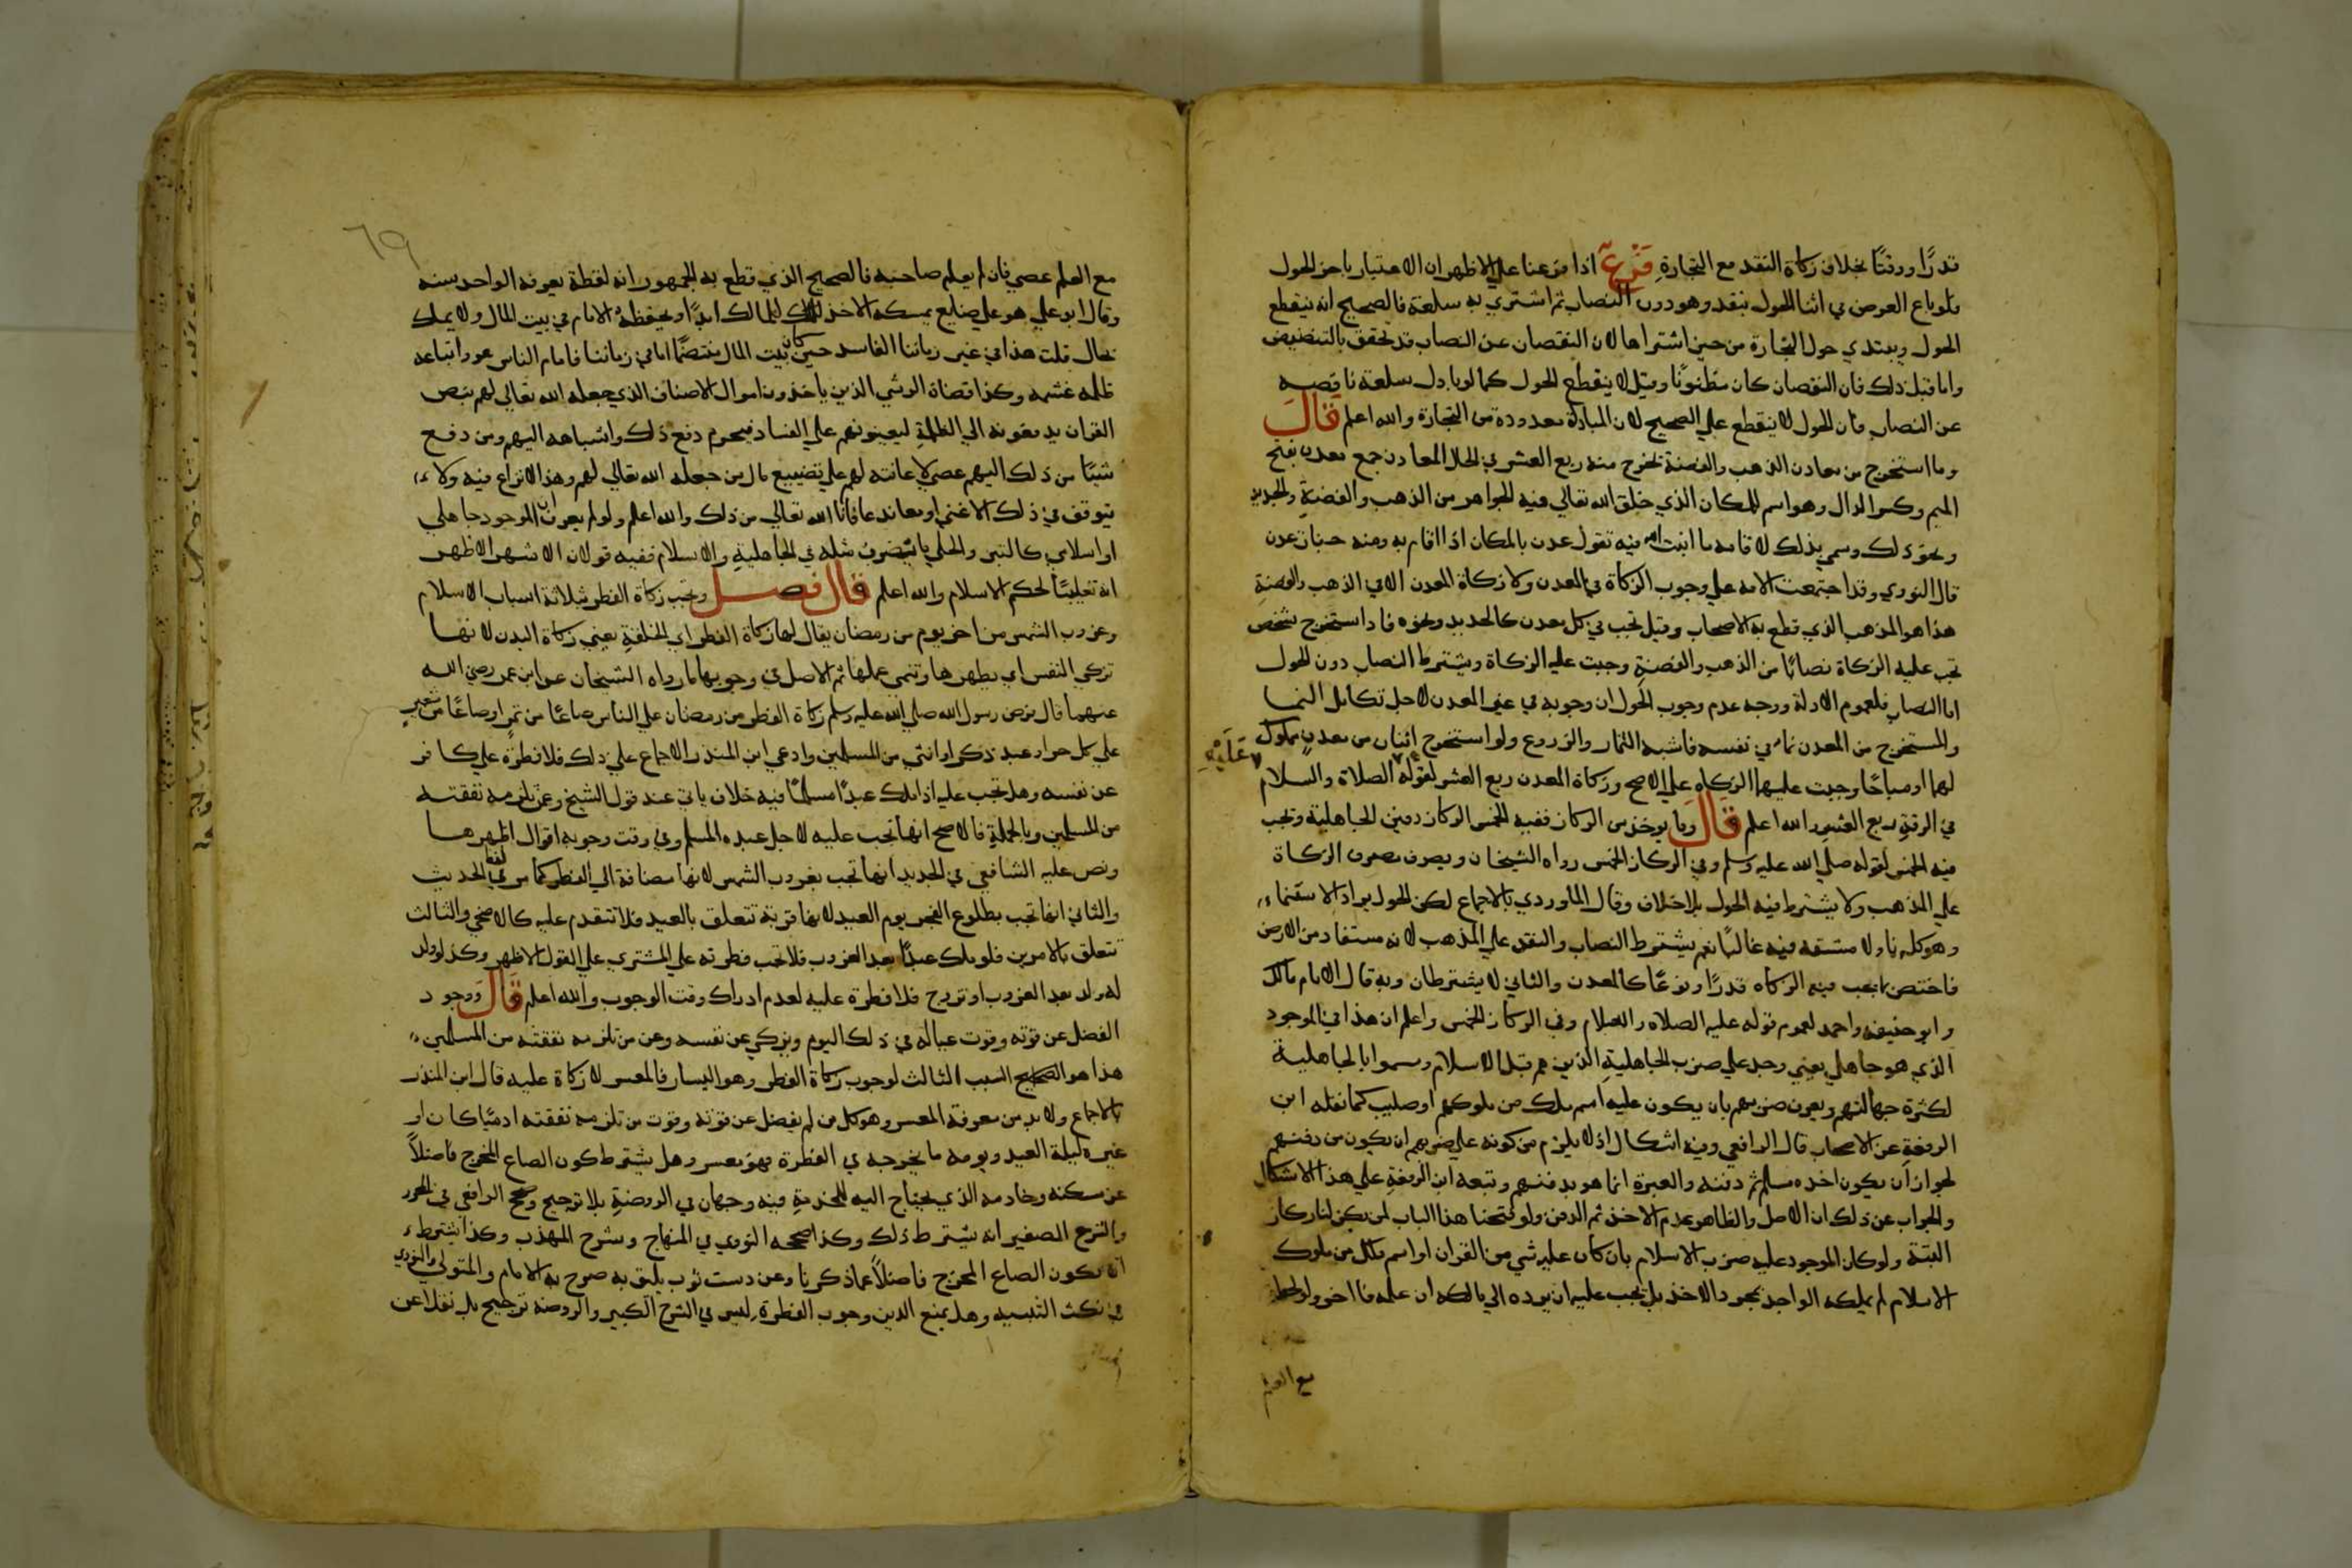 قدرًا ووقتًا بخلاف زكاة النقد مع التجارة فرع اذا فرعنا علي الاظهر ان الاعتبار باخر الحول
فلو باع العرض في اثنا الحول بنقد وهو دون النصاب ثم اشتري به سلعة فالصحيح انه ينقطع
الحول ويبتدي حول التجارة من حين اشتراها لان النقصان عن النصاب قد تحقق بالتنضيض
واما قبل ذلك فان النقصان كان مظنونًا وقيل لا ينقطع الحول كما لو بادل سلعة ناقصه
عن النصاب فان الحول لا ينقطع علي الصحيح لان المبادلة معدودة من التجارة والله اعلم قال
وما استخرج من معادن الذهب والفضة يخرج منه ربع العشر في الحال المعادن جمع معدن بفتح
الميم وكسر الدال وهو اسم للمكان الذي خلق الله تعالي فيه الجواهر من الذهب والفضة والحديد
ونحو ذلك وسمي بذلك لاقامة ما انبت الله فيه تقول عدن بالمكان اذا اقام به ومنه جنات عدن
قال النووي وقد اجتمعت الامة علي وجوب الزكاة في المعدن ولا زكاة المعدن الا في الذهب والفضة
هذا هو المذهب الذي قطع به الاصحاب وقيل تجب في كل معدن كالحديد ونحوه فاذا استخرج شخص
تجب عليه الزكاة نصابًا من الذهب والفضة وجبت عليه الزكاة ويشترط النصاب دون الحول
اما النصاب فلعموم الادلة ووجه عدم وجوب الحول ان وجوبه في غير المعدن لاجل تكامل النما
والمستخرج من المعدن نما في نفسه فاشبه الثمار والزروع ولو استخرج اثنان من معدن مملوك
لهما او مباحًا وجبت عليهما الزكاه علي الاصح وزكاة المعدن ربع العشر لقوله عليه الصلاة والسلام
في الرقة ربع العشر والله اعلم قال وما يوخذ من الركاز ففيه الخمس الركاز دفين الجاهلية وتجب
فيه الخمس لقوله صلي الله عليه وسلم وفي الركاز الخمس رواه الشيخان ويصرف مصرف الزكاة
علي المذهب ولا يشترط فيه الحول بلا خلاف وقال الماوردي بالاجماع لكن الحول يراد للاستنماء
وهو كله نما ولا مشقة فيه غالبًا نعم يشترط النصاب والنقد علي المذهب لانه مستفاد من الارض
فاختص بما تجب فيه الزكاه قدرًا ونوعًا كالمعدن والثاني لا يشترطان وبه قال الامام مالك
وابو حنيفه واحمد لعموم قوله عليه الصلاه والسلام وفي الركاز الخمس واعلم ان هذا في الموجود
الذي هو جاهلي يعني وجد علي ضرب الجاهلية الذين هم قبل الاسلام وسموا بالجاهلية
لكثرة جهالتهم ويعرف ضربهم بان يكون عليه اسم ملك من ملوكهم او صليب كما نقله ابن
الرفعة عن الاصحاب قال الرافعي وفيه اشكال اذ لا يلزم من كونه علي ضربهم ان يكون من دفنهم
لجواز ان يكون اخذه مسلم ثم دفنه والعبرة انما هو بدفنهم وتبعه ابن الرفعة علي هذا الاشكال
والجواب عن ذلك ان الاصل والظاهر عدم الاخذ ثم الدفن ولو فتحنا هذا الباب لم يكن لنا ركاز
البتة ولو كان الموجود عليه ضرب الاسلام بان كان عليه شي من القران او اسم ملك من ملوك
الاسلام لم يملكه الواجد بمجرد الاخذ بل يجب عليه ان يرده الي مالكه ان علمه فان اخره ولو لحظة
مع العلم
٦٩
مع العلم عصي فان لم يعلم صاحبه فالصحيح الذي قطع به الجمهور انه لقطة يعرفه الواحد سنه
وقال ابو علي هو علي ضايع يمسكه الاخذ للمالك ابدًا او يحفظه الامام في بيت المال ولا يملك
بحال قلت هذا في غير زماننا الفاسد حين كان بيت المال منتضمًا اما في زماننا فامام الناس هو واتباعه
ظلمه غشمه وكذا قضاة الرشي الذين ياخذون اموال الاصناف الذي جعله الله تعالي لهم بنص
القران يدفعونه الي الظلمة ليعينونهم علي الفساد فيحرم دفع ذلك واشباهه اليهم ومن دفع
شيئًا من ذلك اليهم عصي لاعانته لهم علي تضييع مال من جعله الله تعالي لهم وهذا لا نزاع فيه ولا
يتوقف في ذلك الا غبي او معاند عافانا الله تعالي من ذلك والله اعلم ولو لم يعرف ان الموجود جاهلي
او اسلامي كالتبر والحلي وما يضرب مثله في الجاهلية والاسلام ففيه قولان الاشهر الاظهر
انه تغليبًا لحكم الاسلام والله اعلم قال فصل وتجب زكاة الفطر بثلاثة اسباب الاسلام
وغروب الشمس من اخر يوم من رمضان يقال لها زكاة الفطر اي الخلقة يعني زكاة البدن لانها
تزكي النفس اي يطهرها وتنمي عملها ثم الاصل في وجوبها ما رواه الشيخان عن ابن عمر رضي الله
عنهما قال فرض رسول الله صلي الله عليه وسلم زكاة الفطر من رمضان علي الناس صاعًا من تمر او صاعًا من شعير
علي كل حر او عبد ذكر او انثي من المسلمين وادعي ابن المنذر الاجماع علي ذلك فلا فطرة علي كافر
عن نفسه وهل تجب عليه اذا ملك عبدًا مسلمًا فيه خلاف ياتي عند قول الشيخ وعمن تلزمه نفقته
من المسلمين وبالجملة فالاصح انها تجب عليه لاجل عبده المسلم وفي وقت وجوبه اقوال اظهرها
ونص عليه الشافعي في الجديد انها تجب بغروب الشمس لانها مضافة الي الفطر كما مر في لفظ الحديث
والثاني انها تجب بطلوع الفجر يوم العيد لانها قربة تتعلق بالعيد فلا تتقدم عليه كالاضحي والثالث
تتعلق بالامرين فلو ملك عبدًا بعد الغروب فلا تجب فطرته علي المشتري علي القول الاظهر وكذا لو ولد
له ولد بعد الغروب او تزوج فلا فطرة عليه لعدم ادراك وقت الوجوب والله اعلم قال ووجود
الفضل عن قوته وقوت عياله في ذلك اليوم ويزكي عن نفسه وعن من تلزمه نفقته من المسلمين
هذا هو السبب الثالث لوجوب زكاة الفطر وهو اليسار فالمعسر لا زكاة عليه قال ابن المنذر
بالاجماع ولا بد من معرفة المعسر وهو كل من لم يفضل عن قوته وقوت من تلزمه نفقته ادميًا كان او
غيره ليلة العيد ويومه ما يخرجه في الفطرة فهو معسر وهل يشترط كون الصاع المخرج فاضلاً
عن مسكنه وخادمه الذي يحتاج اليه للخدمة فيه وجهان في الروضة بلا ترجيح وصحح الرافعي في المحرر
والشرح الصغير انه يشترط ذلك وكذا صححه النووي في المنهاج وشرح المهذب وكذا يشترط
ان يكون الصاع المخرج فاضلاً عما ذكرنا وعن دست ثوب يليق به صرح به الامام والمتولي والنووي
في نكت التنبيه وهل يمنع الدين وجوب الفطرة ليس في الشرح الكبير والروضه ترجيح بل نقلا عن